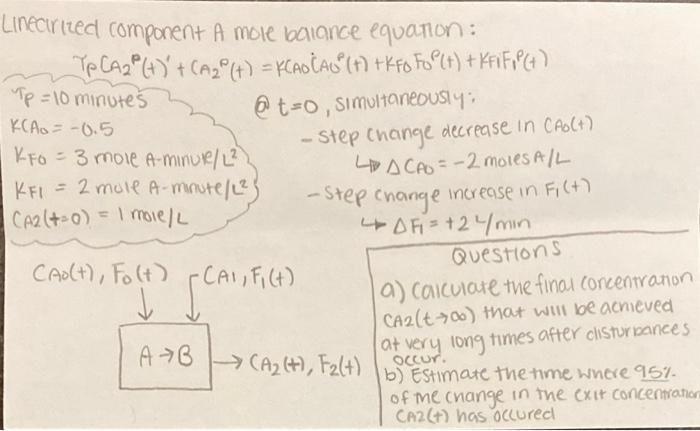 Linearized component A mole balance equation:
τp CA2ᴾ(t)' + CA2ᴾ(t) = KCAO CAOᴾ(t) + KFO FOᴾ(t) + KF1 F1ᴾ(t)
τp = 10 minutes
KCAO = -0.5
KFO = 3 mole A-minute/L²
KF1 = 2 mole A-minute/L²
CA2(t=0) = 1 mole/L
@ t=0, simultaneously:
- step change decrease in CAO(t)
↳ ΔCAO = -2 moles A/L
- step change increase in F1(t)
↳ ΔF1 = +2 L/min
CAO(t), FO(t)
CA1, F1(t)
A → B
→ CA2(t), F2(t)
Questions
a) Calculate the final concentration
CA2(t→∞) that will be achieved
at very long times after disturbances
occur.
b) Estimate the time where 95%
of the change in the exit concentration
CA2(t) has occured